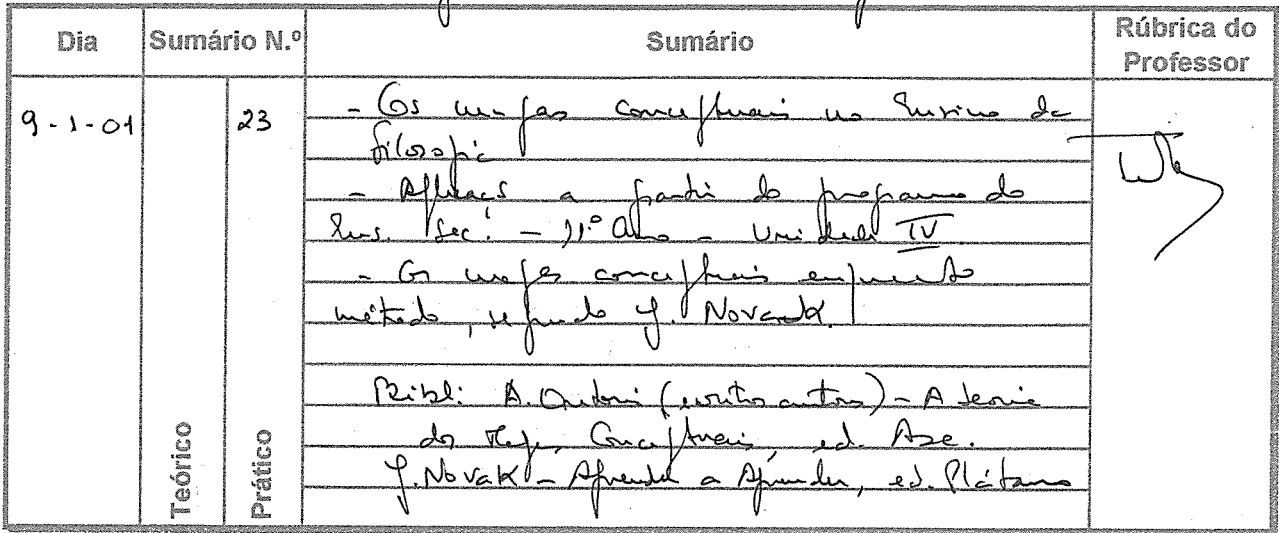 Dia Sumário N.º Sumário Rúbrica do Professor
9-1-01 23 - Os mapas conceptuais no Ensino da
filosofia
- Aplicação a partir do programa do
Ens. Sec. - 11.º Ano - Unidade IV
- Os mapas conceptuais enquanto
método, segundo J. Novak.
Bibli: A. (escritos autores) - A teoria
dos Conceptuais, ed. Asa.
J. Novak - Aprender a Aprender, ed. Plátano
Teórico Prático